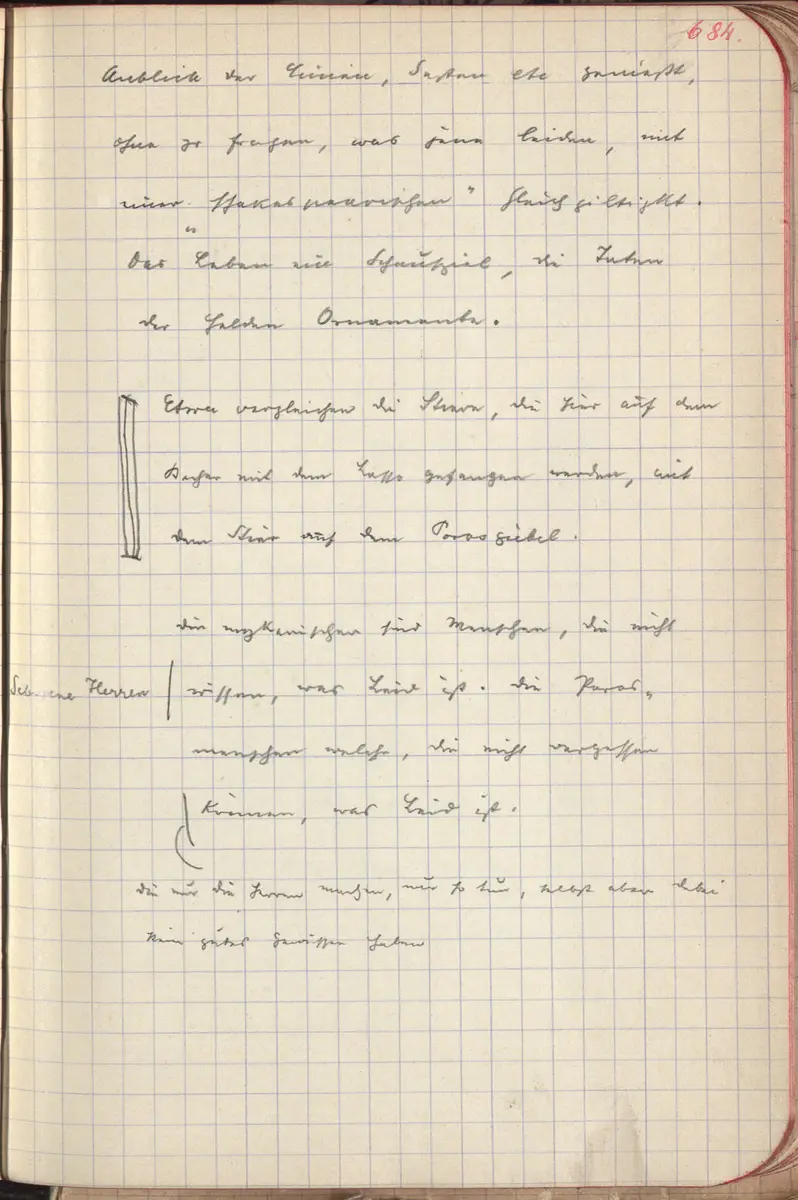 684.
Anblick der Linien, Gesten etc genießt,
ohne zu fragen, was jene leiden, mit
einer „Shakespearischen" Gleichgiltigkt.
Das Leben ein Schauspiel, die Taten
der Helden Ornamente.
Etwa vergleichen die Stiere, die hier auf dem
Becher mit dem Lasso gefangen werden, mit
dem Stier auf dem Porosgiebel.
Die mykenischen sind Menschen, die nicht
Herren wissen, was Leid ist. Die Poros-
menschen welche, die nicht vergessen
können, was Leid ist.
die nur die Herren machen, nur so tun, selbst aber dabei
kein gutes Gewissen haben